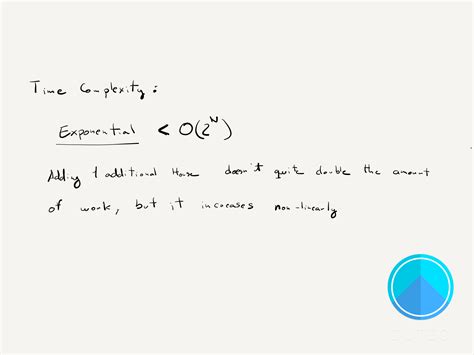 Time Complexity:
Exponential < O(2^N)
Adding 1 additional House doesn't quite double the amount
of work, but it increases non-linearly